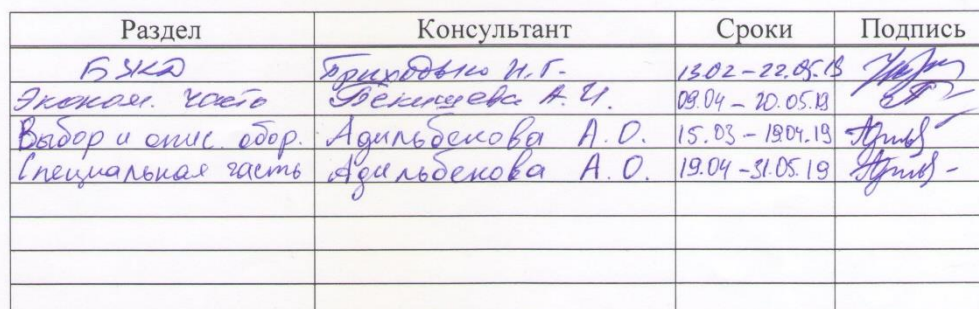 Раздел Консультант Сроки Подпись
БЖД Приходько Н.Г. 13.02 – 22.05.19
Эконом. часть Бекишева А.И. 09.04 – 20.05.19
Выбор и опис. обор. Адильбекова А.О. 15.03 – 19.04.19
Специальная часть Адильбекова А.О. 19.04 – 31.05.19